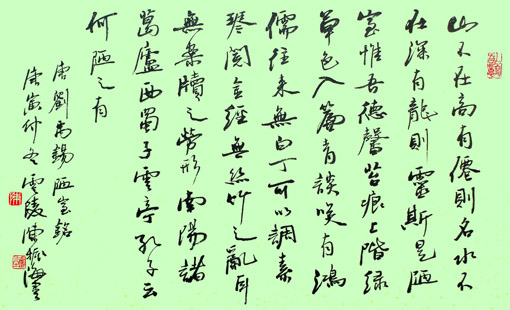 山不在高有僊則名水不
在深有龍則靈斯是陋
室惟吾德馨苔痕上階緑
草色入簾青談咲有鴻
儒往来無白丁可以調素
琴閲金經無絲竹之亂耳
無案牘之勞形南陽諸
葛廬西蜀子雲亭孔子云
何陋之有
唐劉禹錫陋室銘
庚寅仲冬雲陵